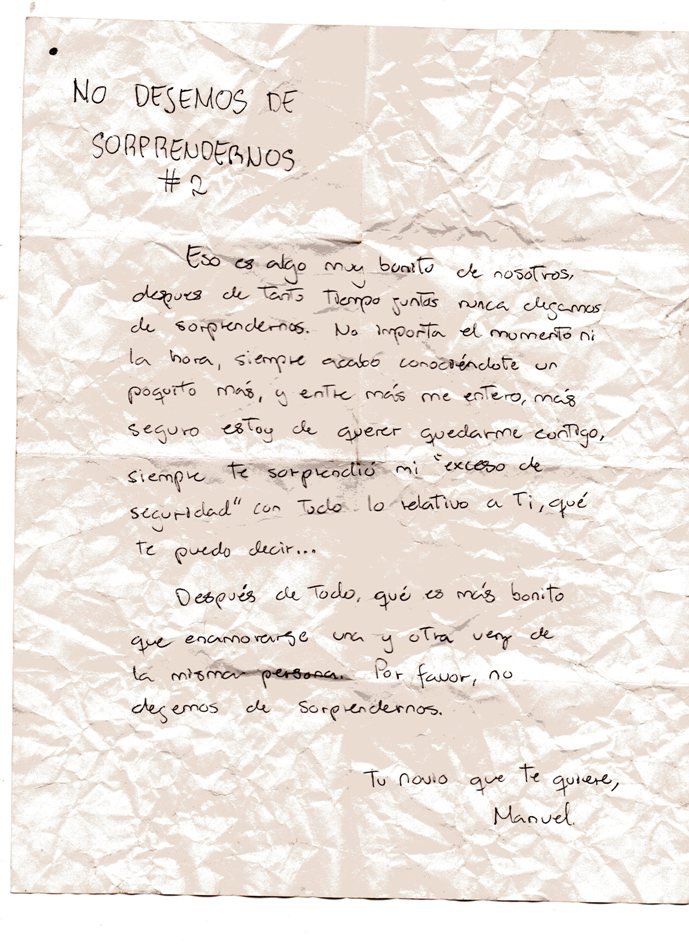 NO DEJEMOS DE
SORPRENDERNOS
#2
Eso es algo muy bonito de nosotros,
despues de tanto tiempo juntos nunca dejamos
de sorprendernos. No importa el momento ni
la hora, siempre acabo conociéndote un
poquito más, y entre más me entero, más
seguro estoy de querer quedarme contigo,
siempre te sorprendió mi "exceso de
seguridad" con todo lo relativo a Ti, qué
te puedo decir...
Después de todo, qué es más bonito
que enamorarse una y otra vez de
la misma persona. Por favor, no
dejemos de sorprendernos.
Tu novio que te quiere,
Manuel.